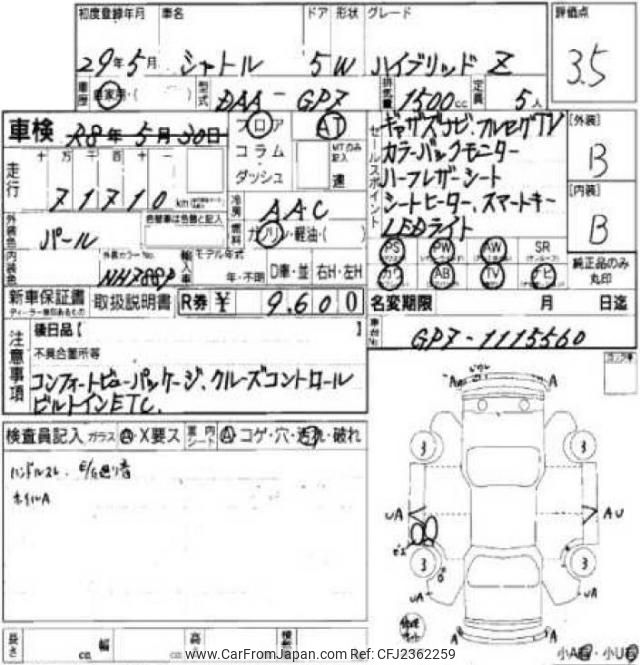 初度登録年月 車名 ドア 形状 グレード 評価点
29年5月 シャトル 5 W ハイブリッド Z 3.5
車歴 自家用・( ) 型式 DAA-GP7 排気量 1500cc 定員 5人
車検 R8年5月30日 フロア AT
コラム MTのみ記入
ダッシュ 速
走行 十 万 千 百 十 一
71710 km
冷房 AAC
燃料 ガソリン・軽油・( )
セールスポイント
ギャザズナビ、フルセグTV
カラーバックモニター
ハーフレザーシート
シートヒーター、スマートキー
LEDライト
[外装]
B
[内装]
B
外装色 パール 色替車は色替と記入
内装色 外装カラーNo. NH788P 輸入車 モデル年式 年・不明 D車・並 右H・左H
PS PW AW SR
カワ AB TV ナビ
純正品のみ丸印
新車保証書 取扱説明書 R券 ¥ 9,600
ディーラー捺印あるもの
名変期限 月 日迄
車台No. GP7-1115560
注意事項
後日品【 】
不具合箇所等
コンフォートビューパッケージ、クルーズコントロール
ビルトインETC.
検査員記入 ガラス A・X要ス 室内シート A コゲ・穴・汚れ・破れ
ハンドルスレ、E/G廻り音
ホイルA
A A
3 3
UA AU
3 3
UA UA
A A
長さ cm 幅 cm 高
小A・小U
www.CarFromJapan.com Ref: CFJ2362259